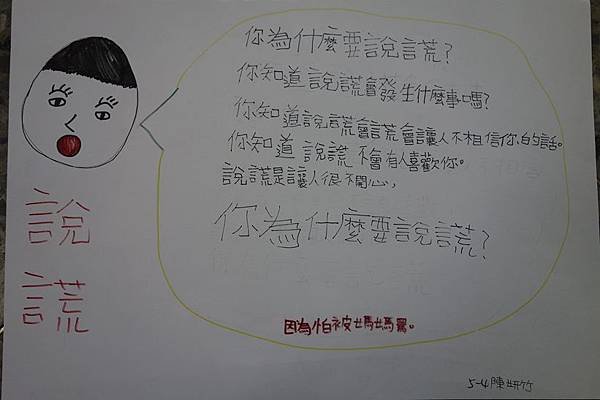 你為什麼要說謊？
你知道說謊會發生什麼事嗎？
你知道說謊會讓人不相信你的話。
你知道說謊不會有人喜歡你。
說謊是讓人很不開心，
你為什麼要說謊？
因為怕被媽媽罵。
說
謊
5-4陳妍竹